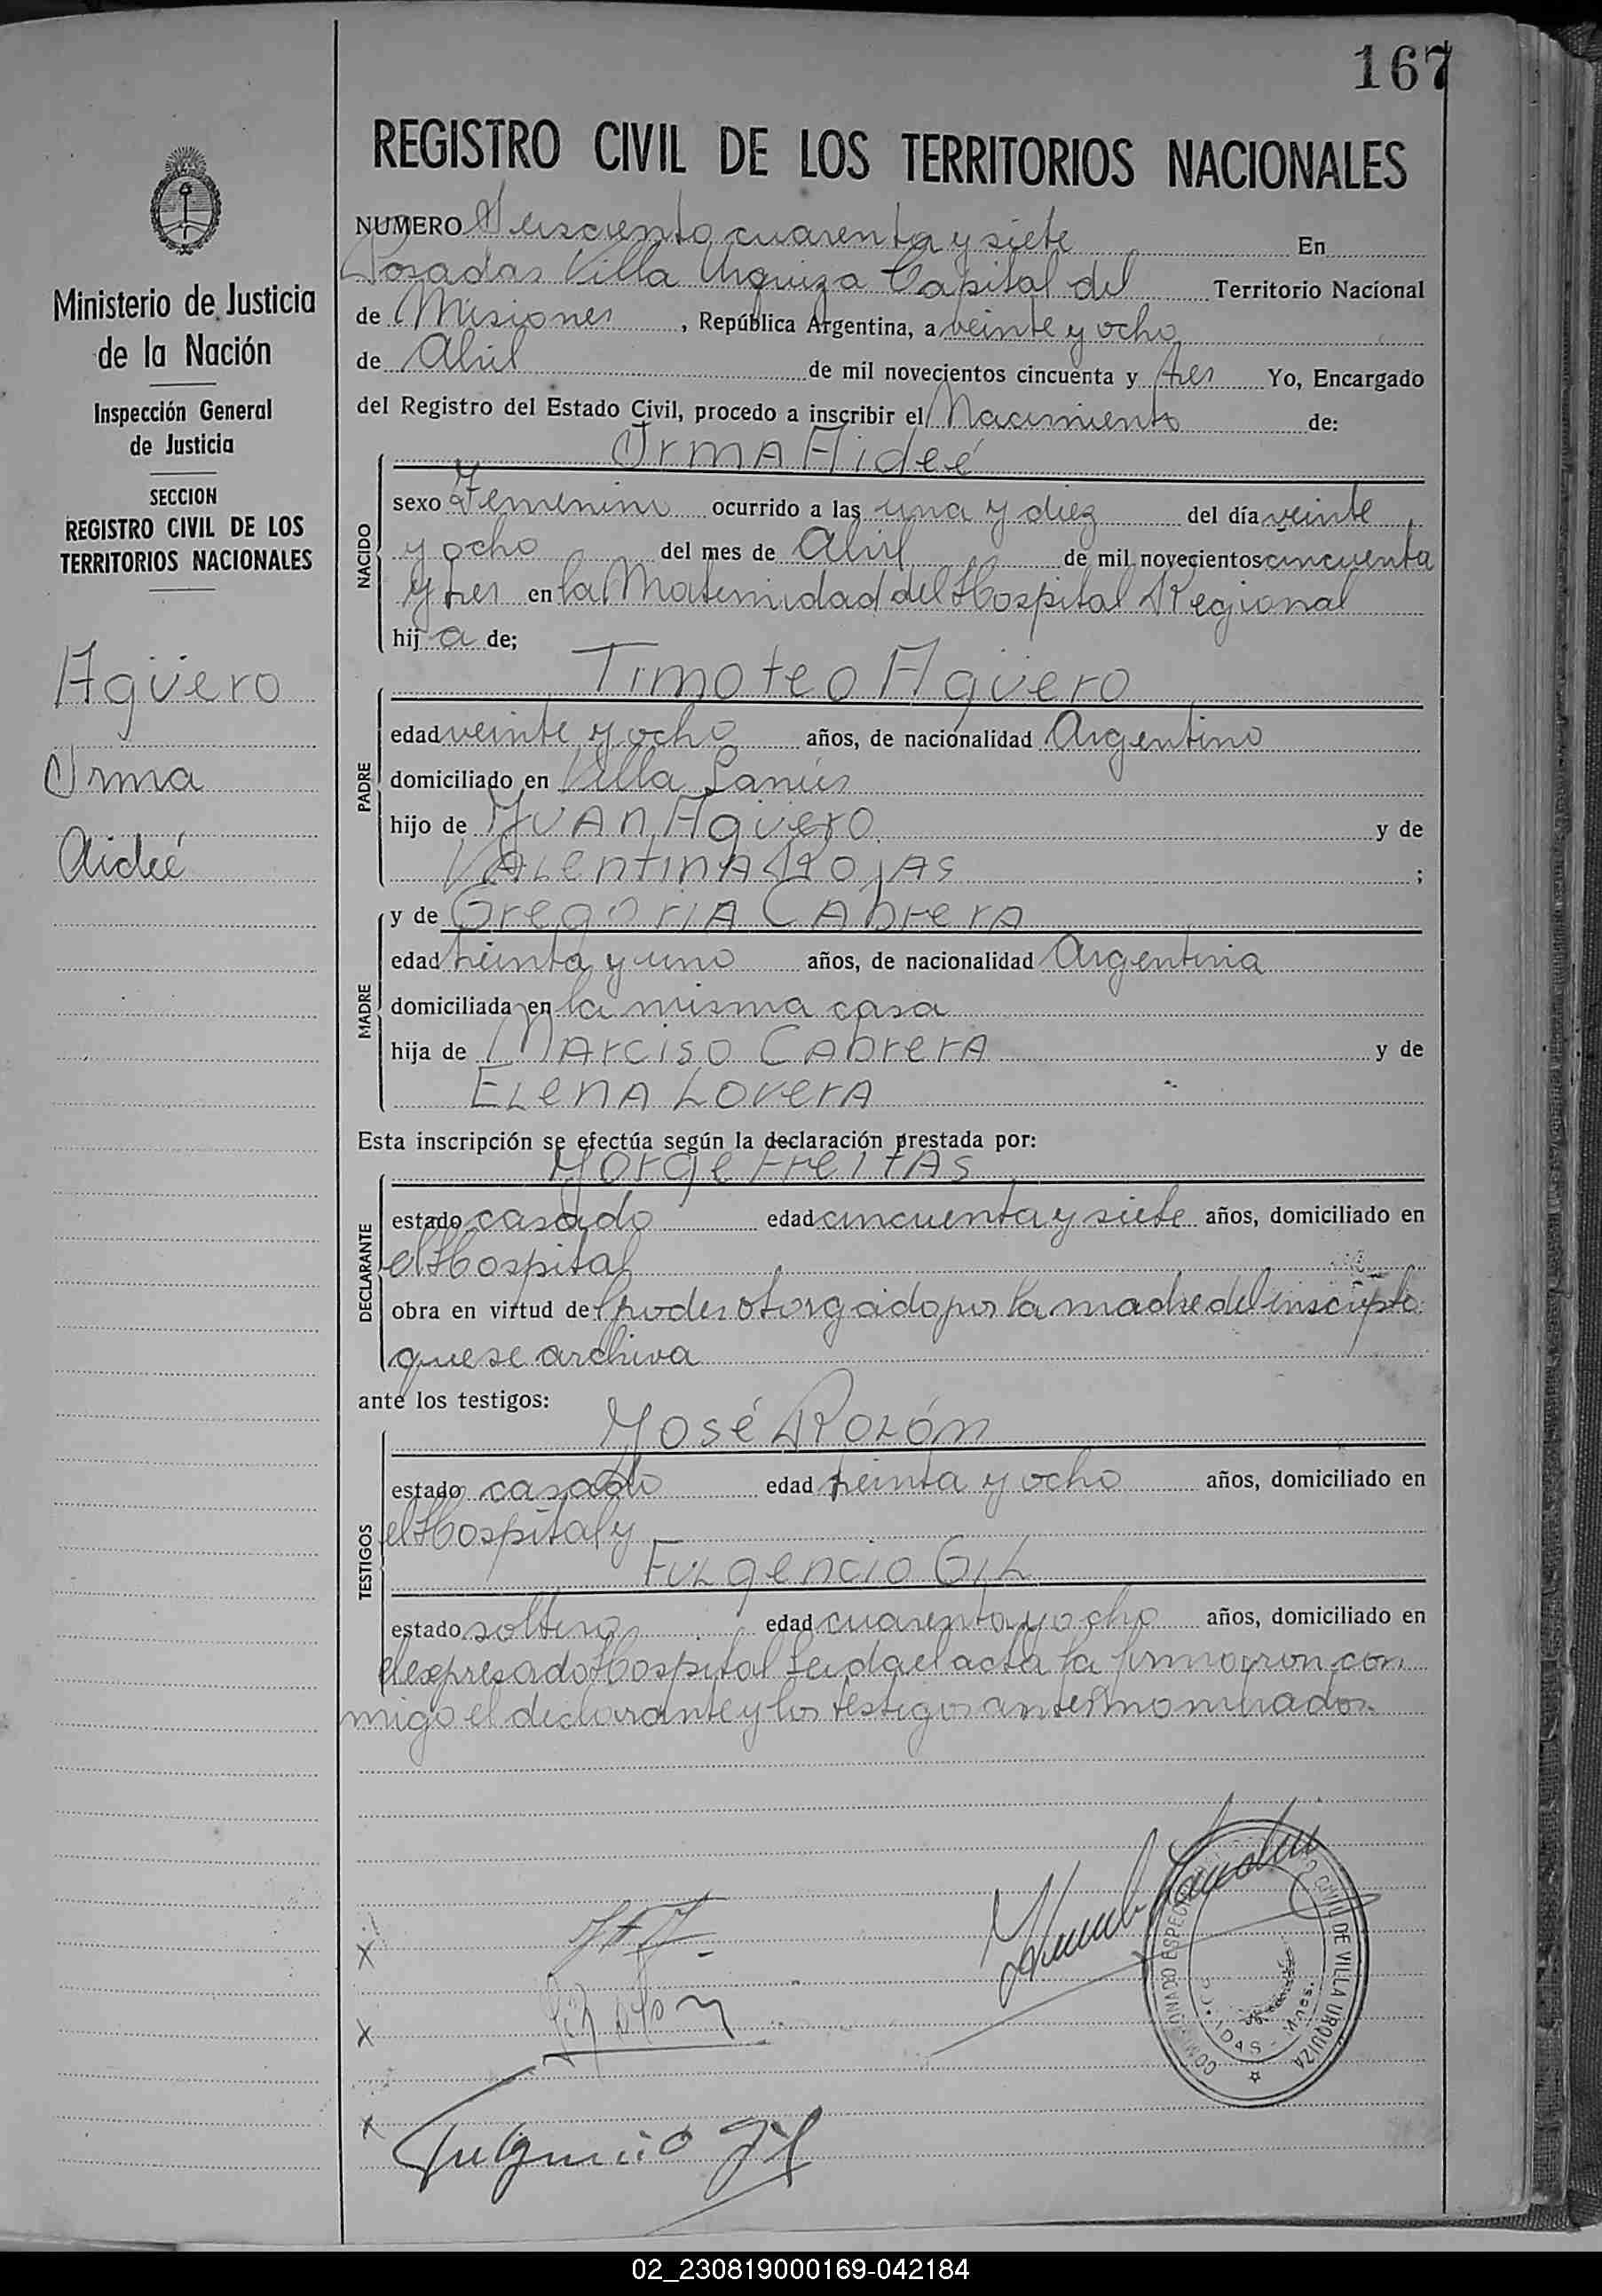 167
REGISTRO CIVIL DE LOS TERRITORIOS NACIONALES
Ministerio de Justicia
de la Nación
Inspección General
de Justicia
SECCION
REGISTRO CIVIL DE LOS
TERRITORIOS NACIONALES
Agüero
Irma
Aideé
NUMERO Seisciento cuarenta y siete En
Posadas Villa Urquiza Capital del Territorio Nacional
de Misiones, República Argentina, a veinte y ocho
de Abril de mil novecientos cincuenta y tres Yo, Encargado
del Registro del Estado Civil, procedo a inscribir el Nacimiento de:
Irma Aideé
NACIDO
sexo Femenino ocurrido a las una y diez del día veinte
y ocho del mes de Abril de mil novecientos cincuenta
y tres en la Maternidad del Hospital Regional
hija de;
Timoteo Agüero
PADRE
edad veinte y ocho años, de nacionalidad Argentino
domiciliado en Villa Lanús
hijo de Juan Agüero y de
Valentina Rojas ;
MADRE
y de Gregoria Cabrera
edad treinta y uno años, de nacionalidad Argentina
domiciliada en la misma casa
hija de Narciso Cabrera y de
Elena Lovera
Esta inscripción se efectúa según la declaración prestada por:
Jorge Freitas
DECLARANTE
estado casado edad cincuenta y siete años, domiciliado en
el Hospital
obra en virtud de poder otorgado por la madre del inscripto
que se archiva
ante los testigos:
José Rolón
TESTIGOS
estado casado edad treinta y ocho años, domiciliado en
el Hospital y
Fulgencio Gil
estado soltero edad cuarenta y ocho años, domiciliado en
el expresado Hospital Leida el acta la firmaron con
migo el declarante y los testigos antes nombrados.
X
X
X Fulgencio Gil
CIVIL DE VILLA URQUIZA
02_230819000169-042184